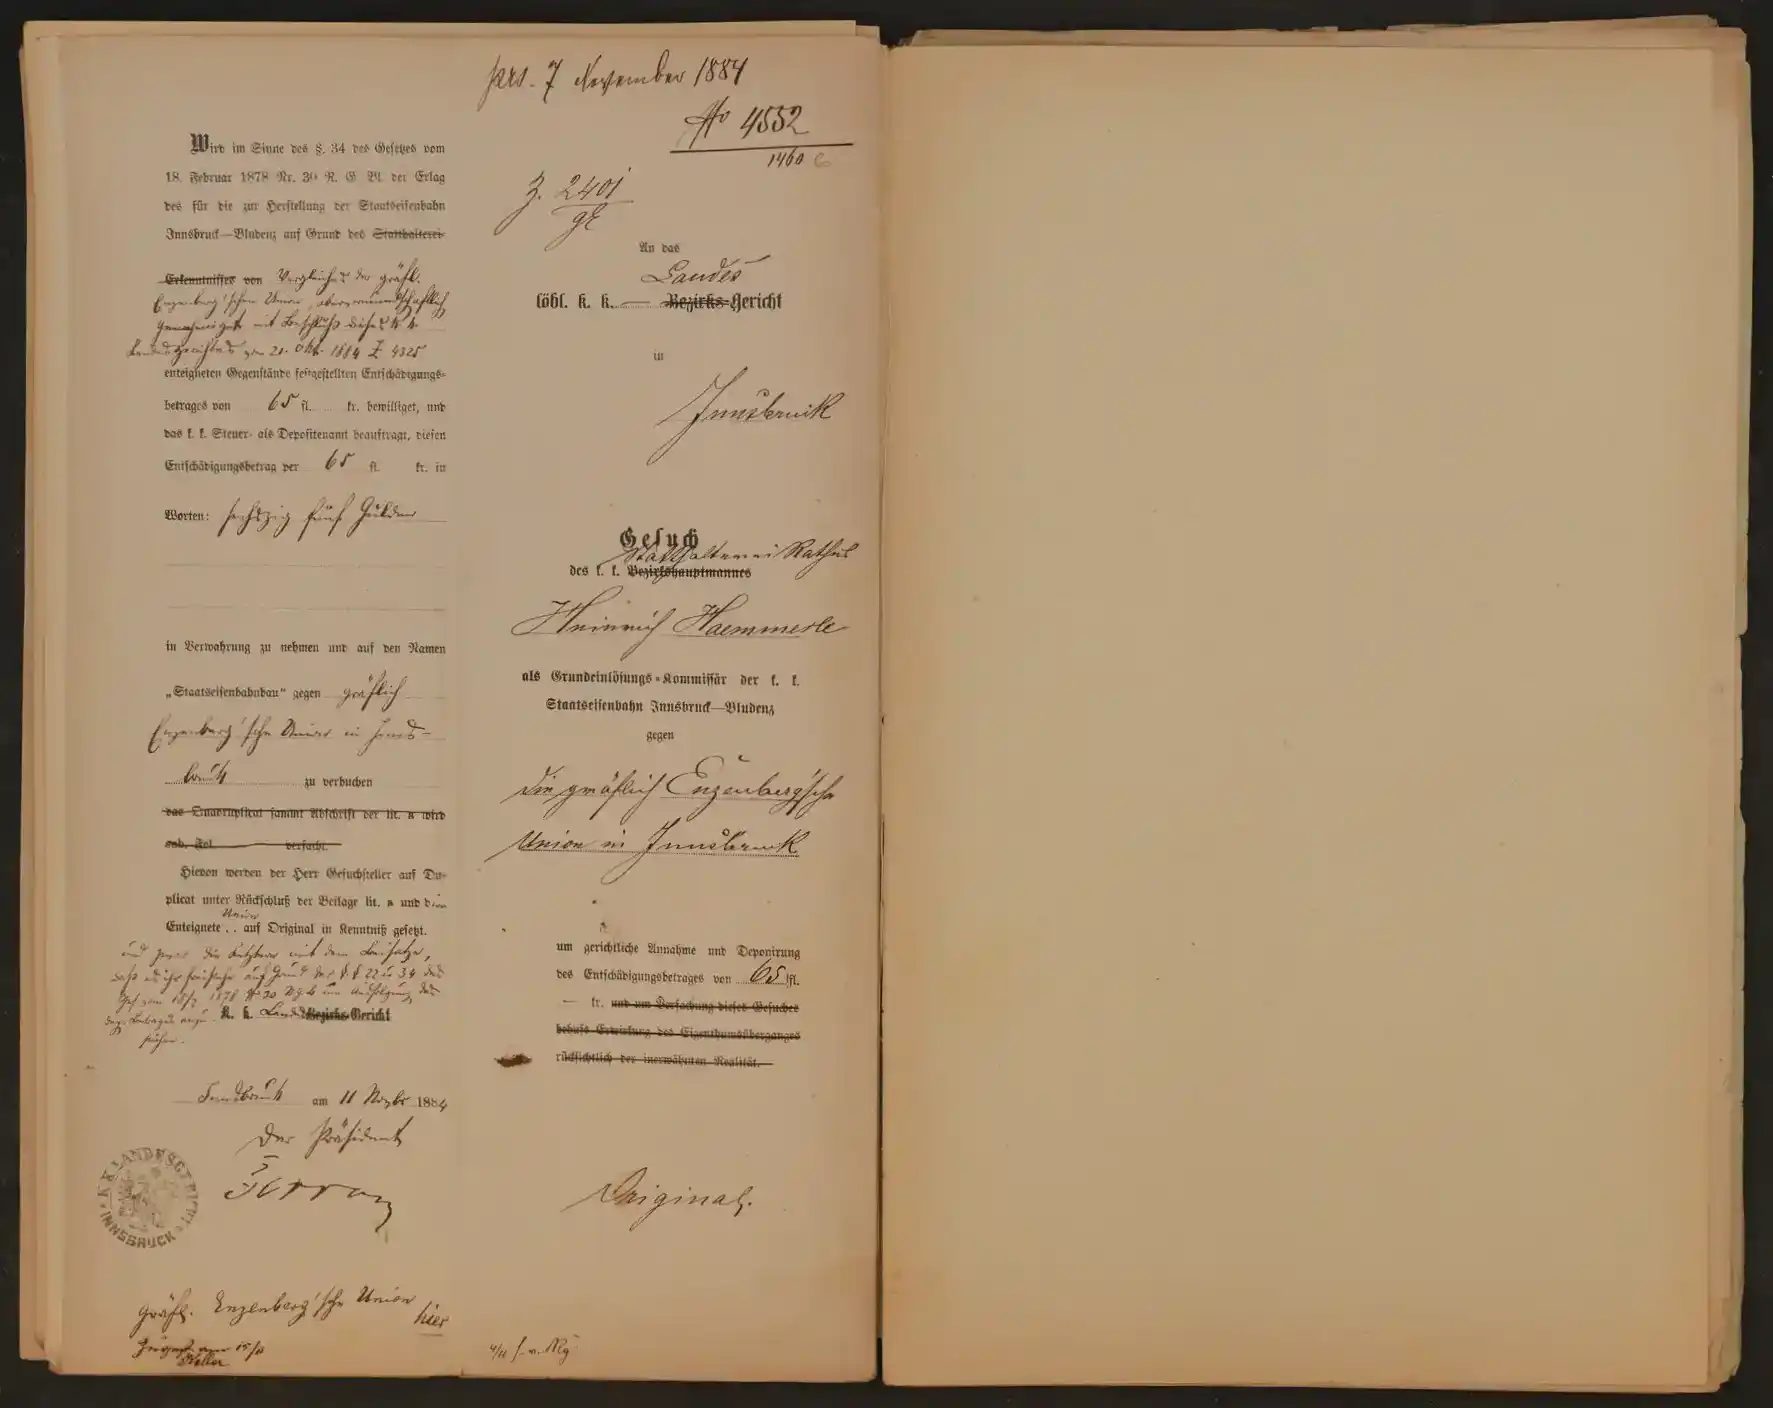 prs. 7 November 1884
No 4552
1460
Z. 2401
Wird im Sinne des §. 34 des Gesetzes vom
18. Februar 1878 Nr. 30 R. G. Bl. der Erlag
des für die zur Herstellung der Staatseisenbahn
Innsbruck—Bludenz auf Grund des Statthalterei-
Erkenntnisses von Vergleiches der gräfl.
Enzenberg'schen Union, obervormundschaftlich
genehmigt mit Beschluß dieses k. k.
Landesgerichtes vom 21. Okt. 1884 Z 4325
enteigneten Gegenstände festgestellten Entschädigungs-
betrages von 65 fl. kr. bewilliget, und
das k. k. Steuer- als Depositenamt beauftragt, diesen
Entschädigungsbetrag per 65 fl. kr. in
Worten: sechszig fünf Gulden
in Verwahrung zu nehmen und auf den Namen
„Staatseisenbahnbau" gegen gräflich
Enzenberg'sche Union in Inns-
bruck zu verbuchen
das Quadruplicat sammt Abschrift der lit. a wird
sub. Fol. verfacht.
Hievon werden der Herr Gesuchsteller auf Du-
plicat unter Rückschluß der Beilage lit. a und die
Union
Enteignete . . auf Original in Kenntniß gesetzt.
und zwar die Letztere mit dem Beisatze,
daß es ihr freistehe auf Grund der §. § 22 u 34 des
Ges. vom 18/2 1878 No 30 RGB um Ausfolgung des
K. k. Landes Bezirks-Gericht
Innsbruck am 11 Novbr 1884
Der Präsident
K.K. LANDESGERICHT
INNSBRUCK
gräfl. Enzenberg'sche Union
hier
An das
Landes
löbl. k. k. Bezirks-Gericht
in
Innsbruck
Gesuch
Statthalterei Rathes
des k. k. Bezirkshauptmannes
Heinrich Haemmerle
als Grundeinlösungs-Kommissär der k. k.
Staatseisenbahn Innsbruck—Bludenz
gegen
die gräflich Enzenberg'sche
Union in Innsbruck
um gerichtliche Annahme und Deponirung
des Entschädigungsbetrages von 65 fl.
— kr. und um Verfachung dieses Gesuches
behufs Erwirkung des Eigenthumsüberganges
rücksichtlich der inerwähnten Realität.
Original.